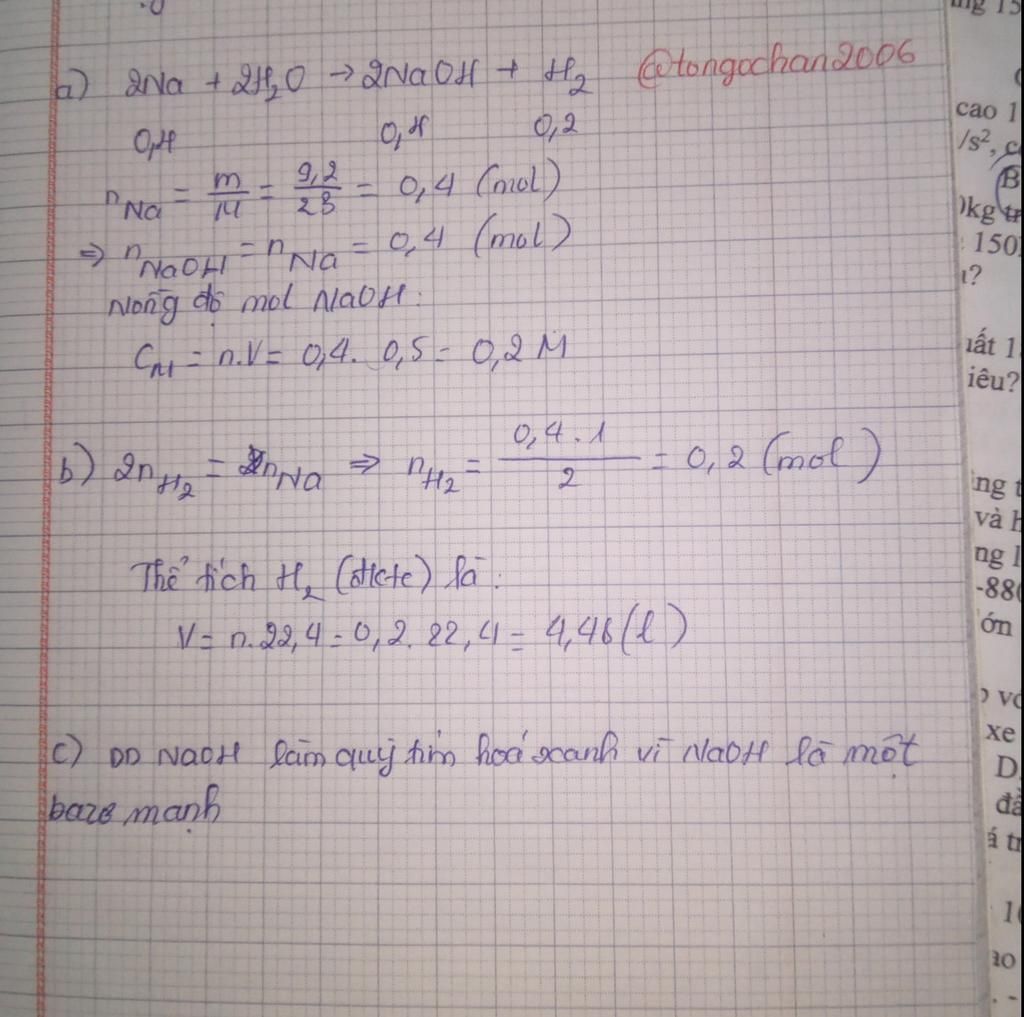 a) 2Na + 2H₂O → 2NaOH + H₂ @tongochan2006
0,4 0,4 0,2
nNa = m/M = 9,2/23 = 0,4 (mol)
⇒ nNaOH = nNa = 0,4 (mol)
Nồng độ mol NaOH:
CM = n.V = 0,4. 0,5 = 0,2 M
b) 2nH₂ = nNa ⇒ nH₂ = 0,4.1/2 = 0,2 (mol)
Thể tích H₂ (đktc) là:
V = n.22,4 = 0,2. 22,4 = 4,48 (l)
c) DD NaOH làm quỳ tím hoá xanh vì NaOH là một
bazơ mạnh
cao 1
/s²,
B
)kg tr
150
?
uất 1
iêu?
và h
ng l
-880
ớn
vc
xe
D
đầ
á tr
1